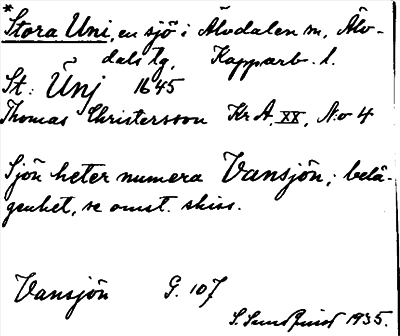 * Stora Uni, en sjö i Älvdalen sn, Älv-
dals tg, Kopparb. l.
St: Ũnj 1645
Thomas Christersson Kr A, XX, No 4
Sjön heter numera Vansjön; belä-
genhet, se omst. skiss.
Vansjön G. 107
S. Sundquist 1935.